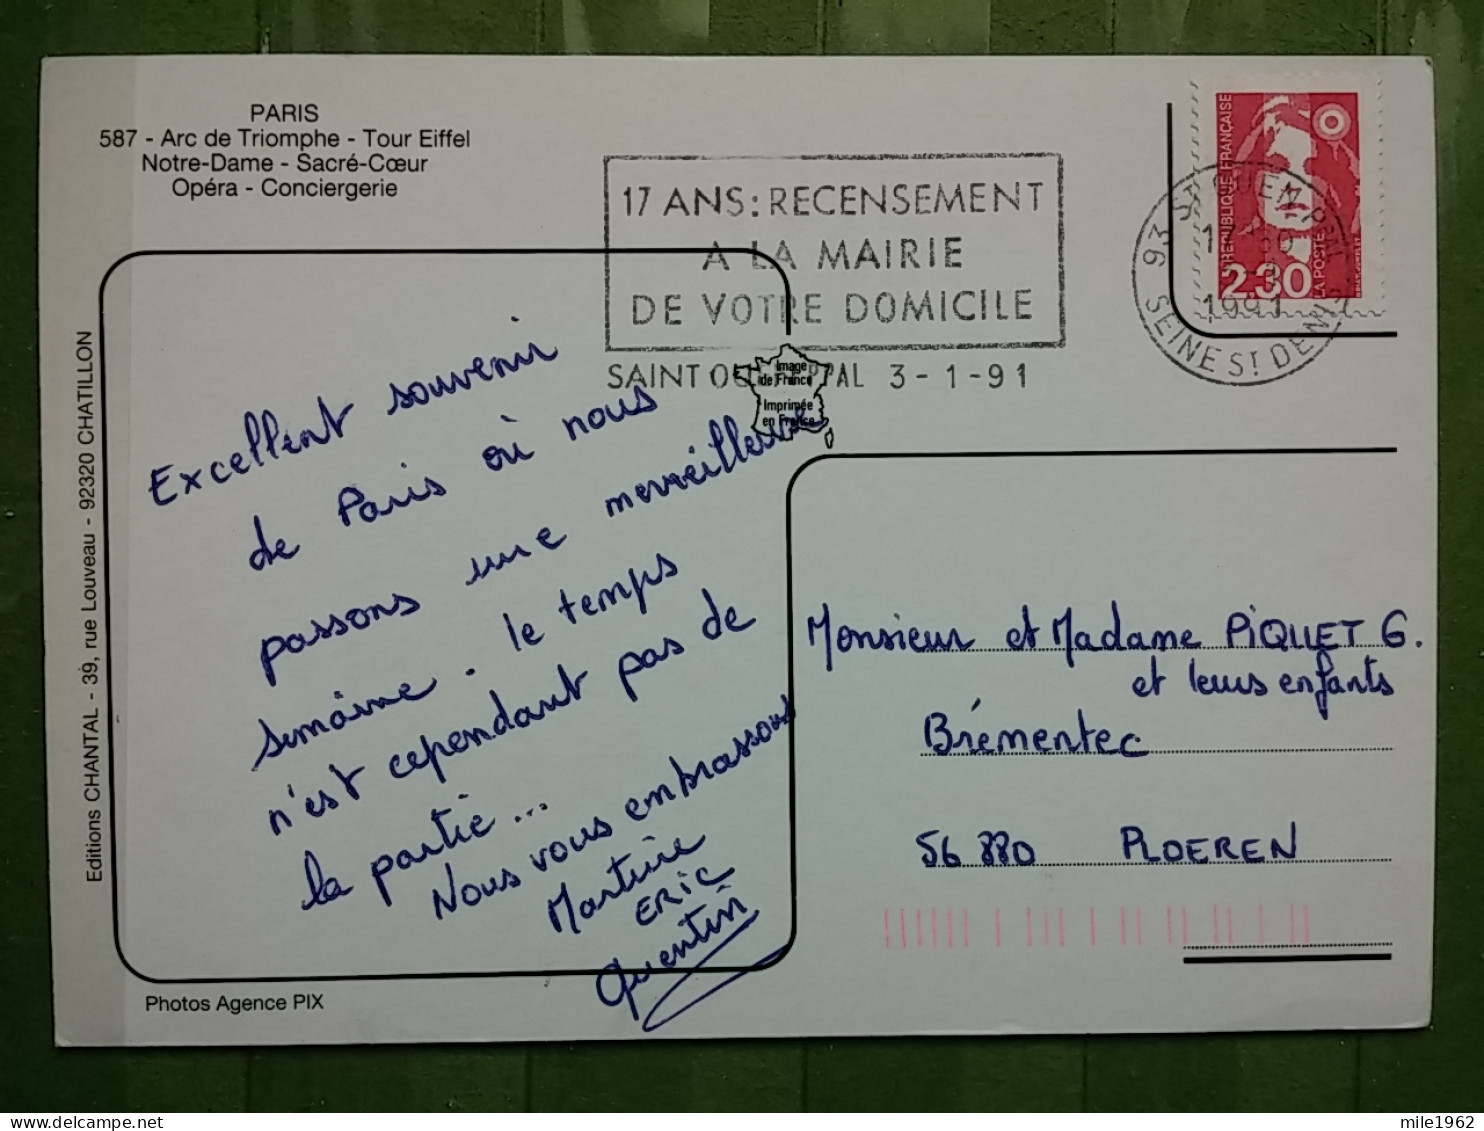 PARIS
587 - Arc de Triomphe - Tour Eiffel
Notre-Dame - Sacré-Cœur
Opéra - Conciergerie
17 ANS : RECENSEMENT
A LA MAIRIE
DE VOTRE DOMICILE
SAINT OUEN PPAL 3-1-91
REPUBLIQUE FRANÇAISE
2,30
LA POSTE
93 ST OUEN PPAL
3-1
1991
SEINE ST DENIS
Image
de France
Imprimée
en France
Excellent souvenir
de Paris où nous
passons une merveilleuse
semaine. le temps
n'est cependant pas de
la partie...
Nous vous embrassons
Martine
ERIC
Quentin
Monsieur et Madame PIQUET G.
et leurs enfants
Brémentec
56 880 PLOEREN
Editions CHANTAL - 39, rue Louveau - 92320 CHATILLON
Photos Agence PIX
mile1962